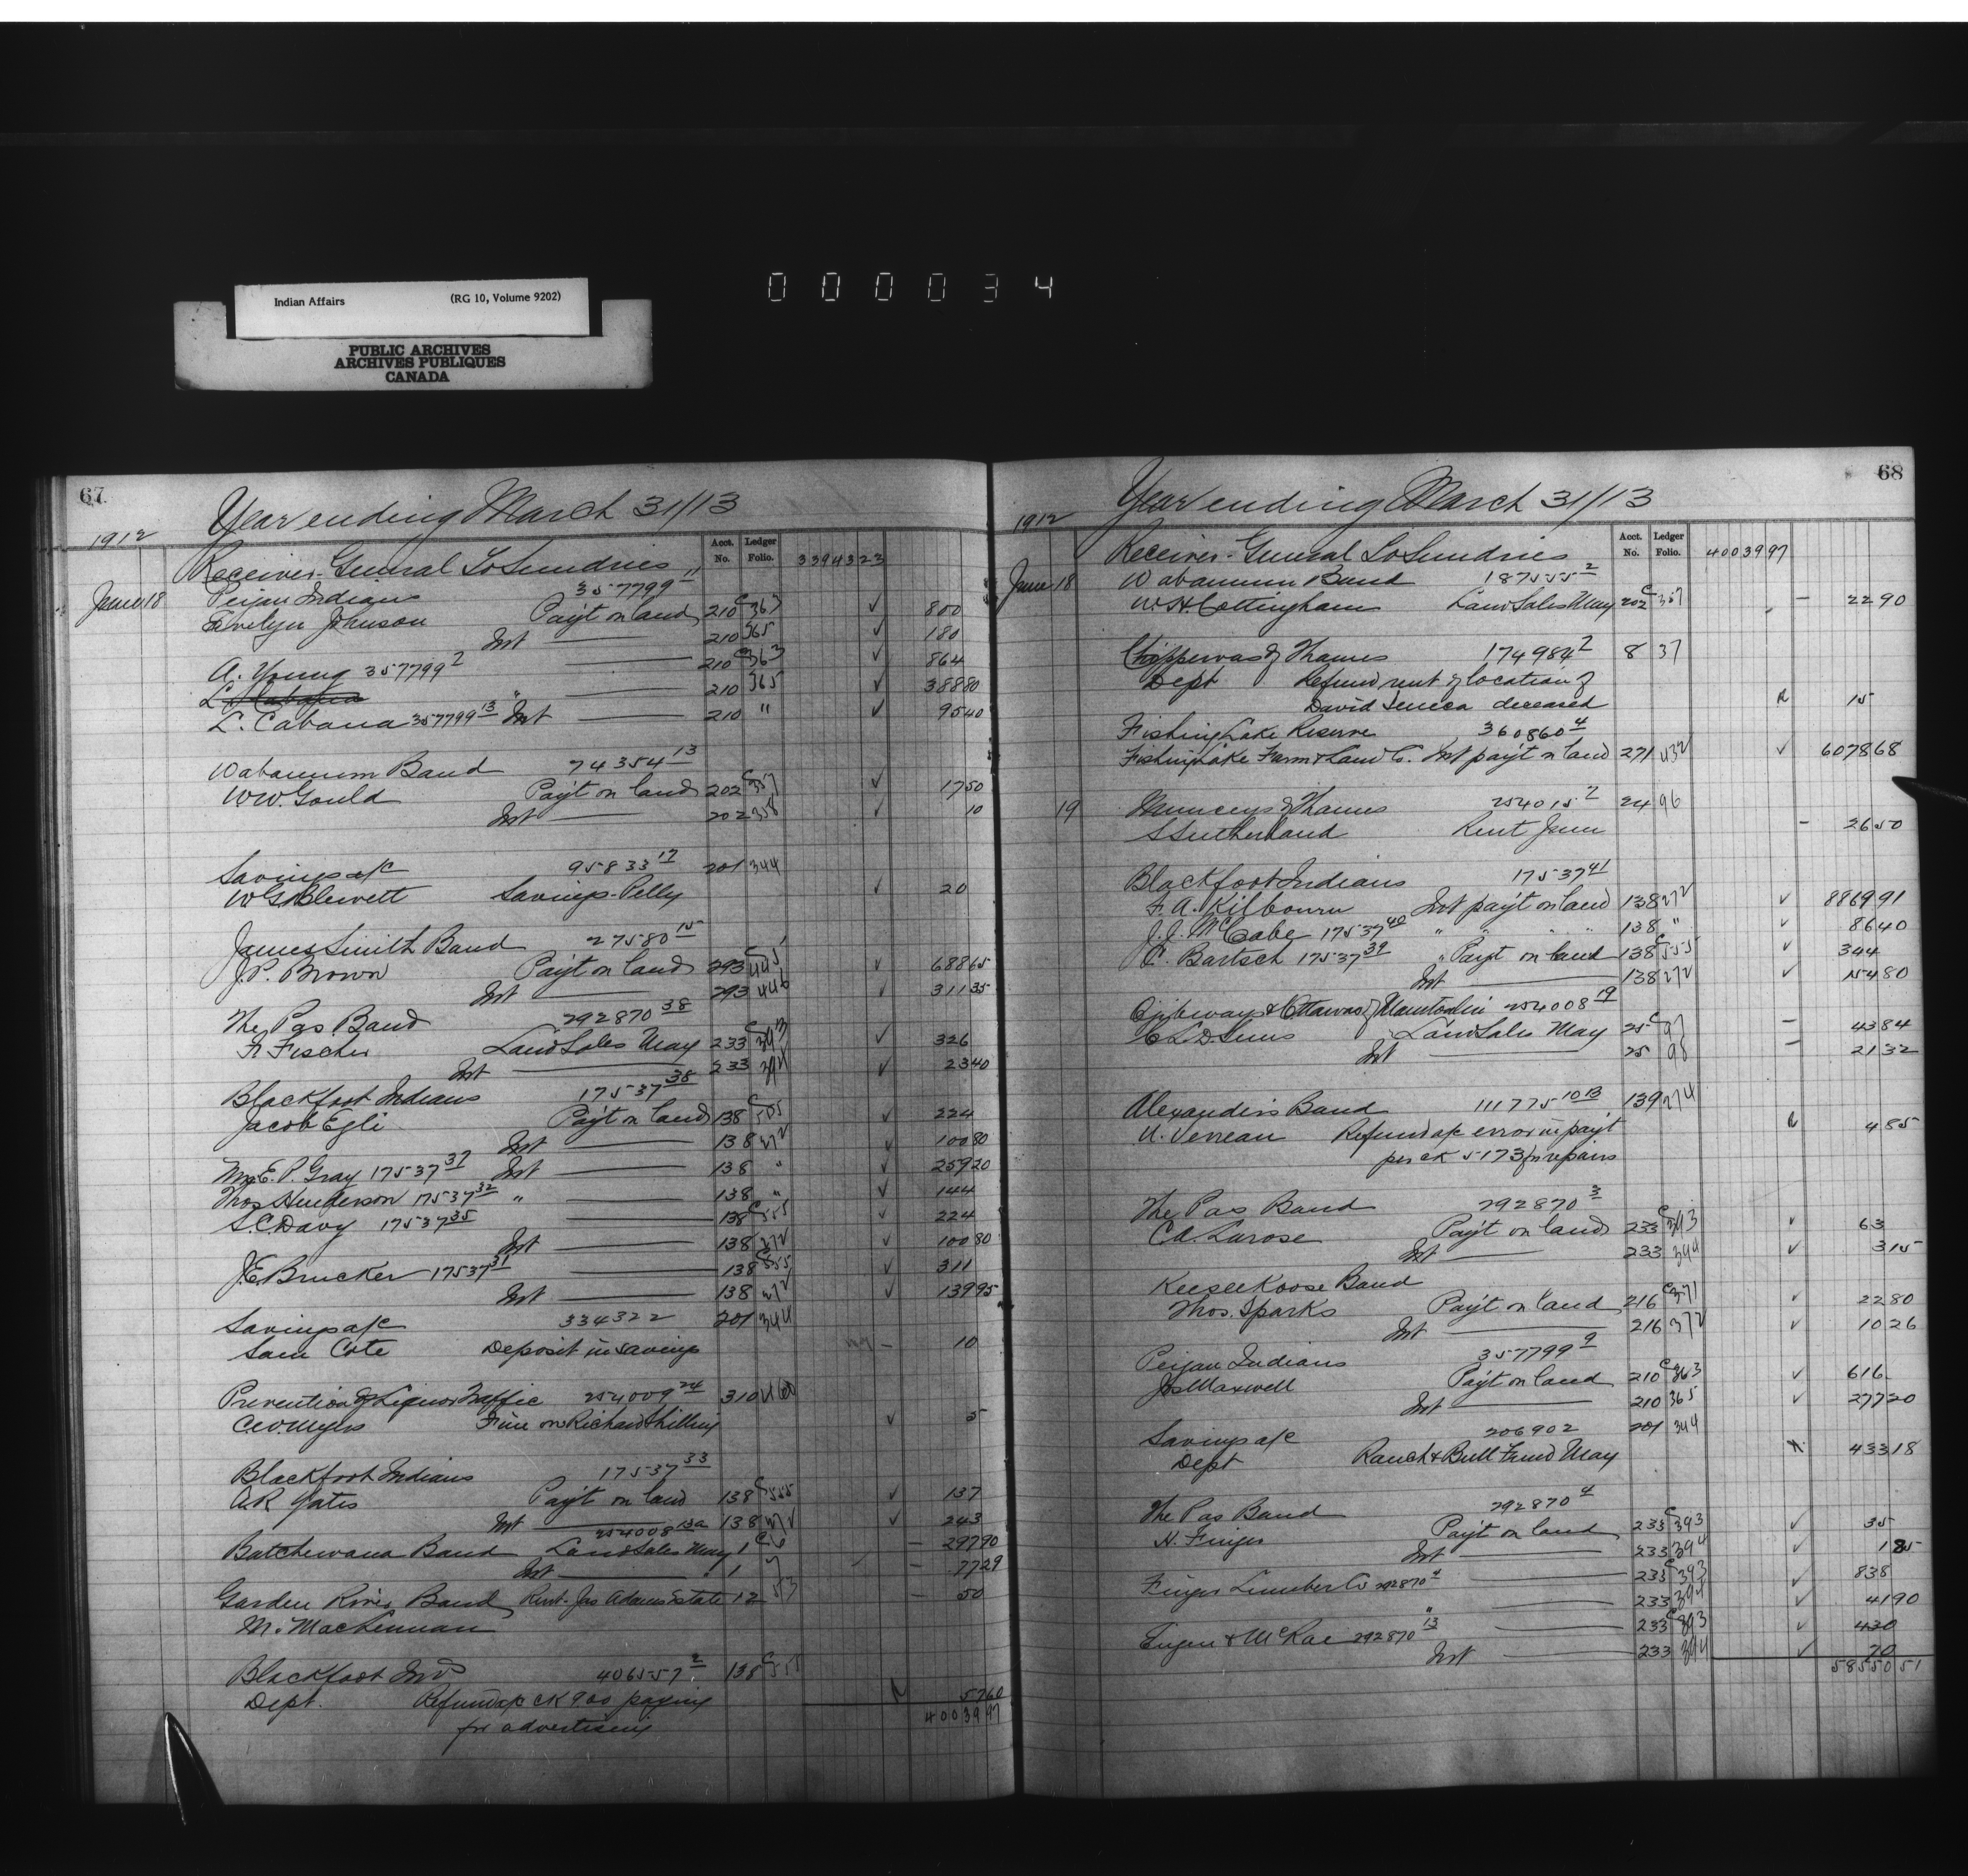 000034
Indian Affairs (RG 10, Volume 9202)
PUBLIC ARCHIVES
ARCHIVES PUBLIQUES
CANADA
67
Year ending March 31/13
1912
Acct. No. Ledger Folio.
Receiver-General To Sundries 33943 23
June 18 Peigan Indians 357799 11
Evelyn Johnson Payt on land 210 C367 ✓ 800
Int 210 365 ✓ 180
A. Young 357799 2 210 C363 ✓ 864
" 210 365 ✓ 388 80
L. Cabana 357799 13 Int 210 " ✓ 95 40
Wabamum Band 74354 13
W.W. Gould Payt on land 202 C357 ✓ 17 50
Int 202 358 ✓ 10
Savings a/c 95833 17 201 344
W.G. Blewett Savings-Pelly ✓ 20
James Smith Band 27580 15
J.P. Brown Payt on land 293 C445 ✓ 688 65
Int 293 446 ✓ 311 35
The Pas Band 292870 38
F. Fischer Land Sales May 233 C393 ✓ 326
Int 233 394 ✓ 23 40
Blackfoot Indians 17537 38
Jacob Egli Payt on land 138 C555 ✓ 224
Int 138 272 ✓ 100 80
Mrs E.P. Gray 17537 37 Int 138 " ✓ 259 20
Thos Henderson 17537 32 " 138 " ✓ 144
S.C. Davy 17537 35 138 C555 ✓ 224
Int 138 272 ✓ 100 80
J.E. Brucker 17537 31 138 C555 ✓ 311
Int 138 272 ✓ 139 95
Savings a/c 334322 201 344
Sam Cote Deposit in savings – 10
Prevention of Liquor Traffic 254009 24 310 460
C.W. Myers Fine on Richard Shilling ✓ 5
Blackfoot Indians 17537 33
A.R. Yates Payt on land 138 C555 ✓ 137
Int 138 272 ✓ 243
254008 13a
Batchewana Band Land Sales May 1 C6 – 297 90
Int 1 7 – 77 29
Garden River Band Rent-Jas Adams Estate 12 53 – 50
M. MacLennan
Blackfoot Inds 406557 2 138 C555
Dept. Refund a/c ck 900 paying 57 60
for advertising 40039 97
68
Year ending March 31/13
1912
Acct. No. Ledger Folio.
Receiver-General To Sundries 40039 97
June 18 Wabamum Band 187555 2
W.H. Cottingham Land Sales May 202 C357 – 22 90
Chippewas of Thames 174984 2 8 37
Dept Refund rent of location of
David Seneca deceased 15
Fishing Lake Reserve 360860 4
Fishing Lake Farm & Land Co. Int payt on land 271 432 ✓ 6078 68
19 Munceys of Thames 254015 2 24 96
S Sutherland Rent June – 26 50
Blackfoot Indians 17537 41
F.A. Kilbourn Int payt on land 138 272 ✓ 8869 91
J.J. McCabe 17537 40 " " " " 138 " ✓ 86 40
C. Bartsch 17537 39 " Payt on land 138 C555 ✓ 344
Int 138 272 ✓ 154 80
Ojibways & Ottawas of Manitoulin 254008 19
C.L.D. Sims Land Sales May 25 C97 – 43 84
Int 25 98 – 21 32
Alexander's Band 111775 1013 139 274
U. Verreau Refund a/c error in payt 4 85
per ck 5173 for repairs
The Pas Band 292870 3
C.A. Larose Payt on land 233 C393 ✓ 63
Int 233 394 ✓ 3 15
Keeseekoose Band
Thos. Sparks Payt on land 216 C371 ✓ 22 80
Int 216 372 ✓ 10 26
Peigan Indians 357799 9
Jos Maxwell Payt on land 210 C363 ✓ 616
Int 210 365 ✓ 277 20
Savings a/c 206902 201 344
Dept Ranch & Bull Fund May 433 18
The Pas Band 292870 4
H. Finger Payt on land 233 C393 ✓ 35
Int 233 394 ✓ 1 85
Finger Lumber Co 292870 4 233 C393 ✓ 838
" 233 394 ✓ 41 90
Finger & McRae 292870 13 233 C393 ✓ 430
Int 233 394 ✓ 70
58550 51